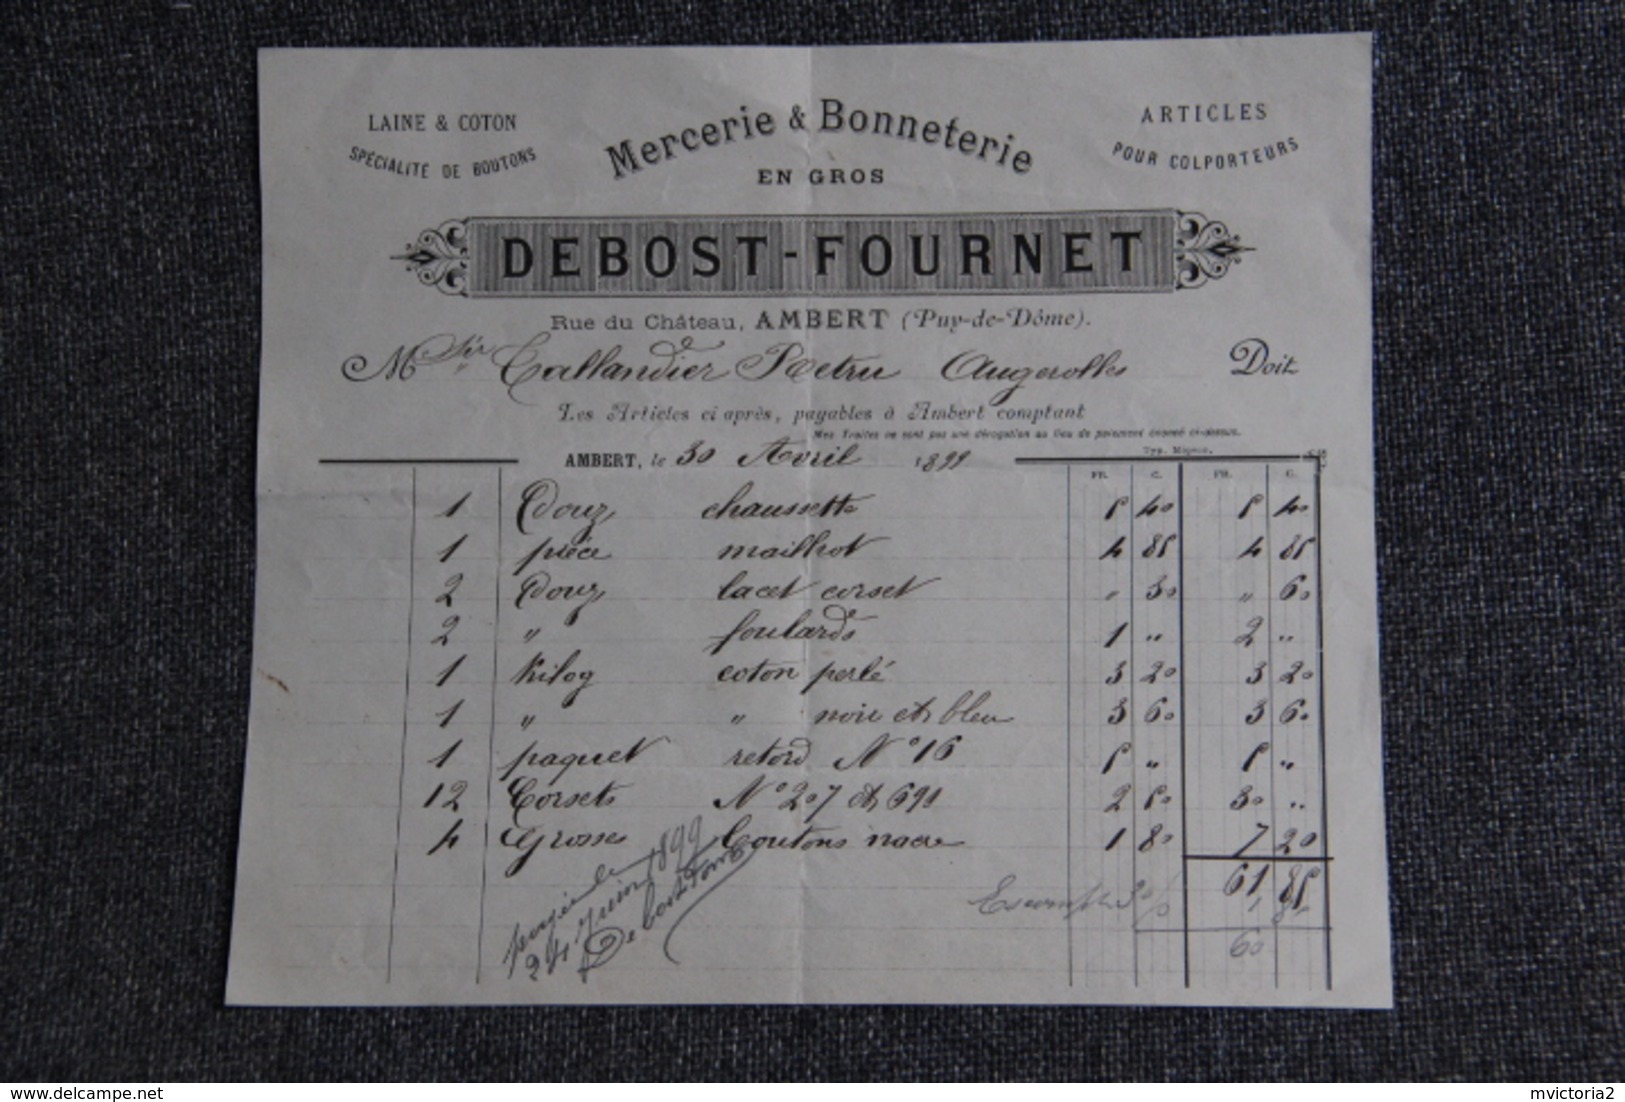 LAINE & COTON
SPÉCIALITÉ DE BOUTONS
Mercerie & Bonneterie
EN GROS
ARTICLES
POUR COLPORTEURS
DEBOST-FOURNET
Rue du Château, AMBERT (Puy-de-Dôme).
M Callandier Augerolles Doit
Les Articles ci après, payables à Ambert comptant
Mes Traites ne sont pas une dérogation au lieu de paiement énoncé ci-dessus.
Typ. Migeon.
AMBERT, le 30 Avril 1899
FR. C. FR. C.
1 Douz chaussette 5 40 5 40
1 pièce maillot 4 85 4 85
2 Douz lacet corset " 30 " 60
2 " foulards 1 " 2 "
1 Kilog coton perlé 3 20 3 20
1 " " noir et bleu 3 60 3 60
1 paquet retord N° 16 5 " 5 "
12 Corsets N° 207 et 691 2 50 30 "
4 Grosse boutons nacre 1 80 7 20
61, 85
Escompte 3 %
60
24 Juin 1899
Debost Four
delcampe.net
mvictoria2